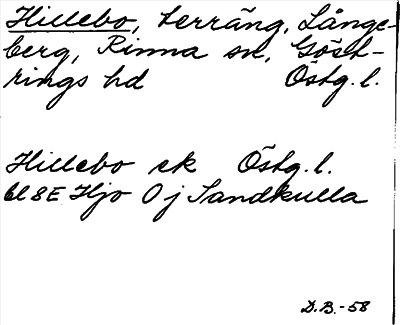 Hillebo, terräng, Långe-
berg, Rinna sn, Göst-
rings hd Östg. l.
Hillebo ek Östg. l.
bl 8E Hjo 0j Sandkulla
D.B.-58